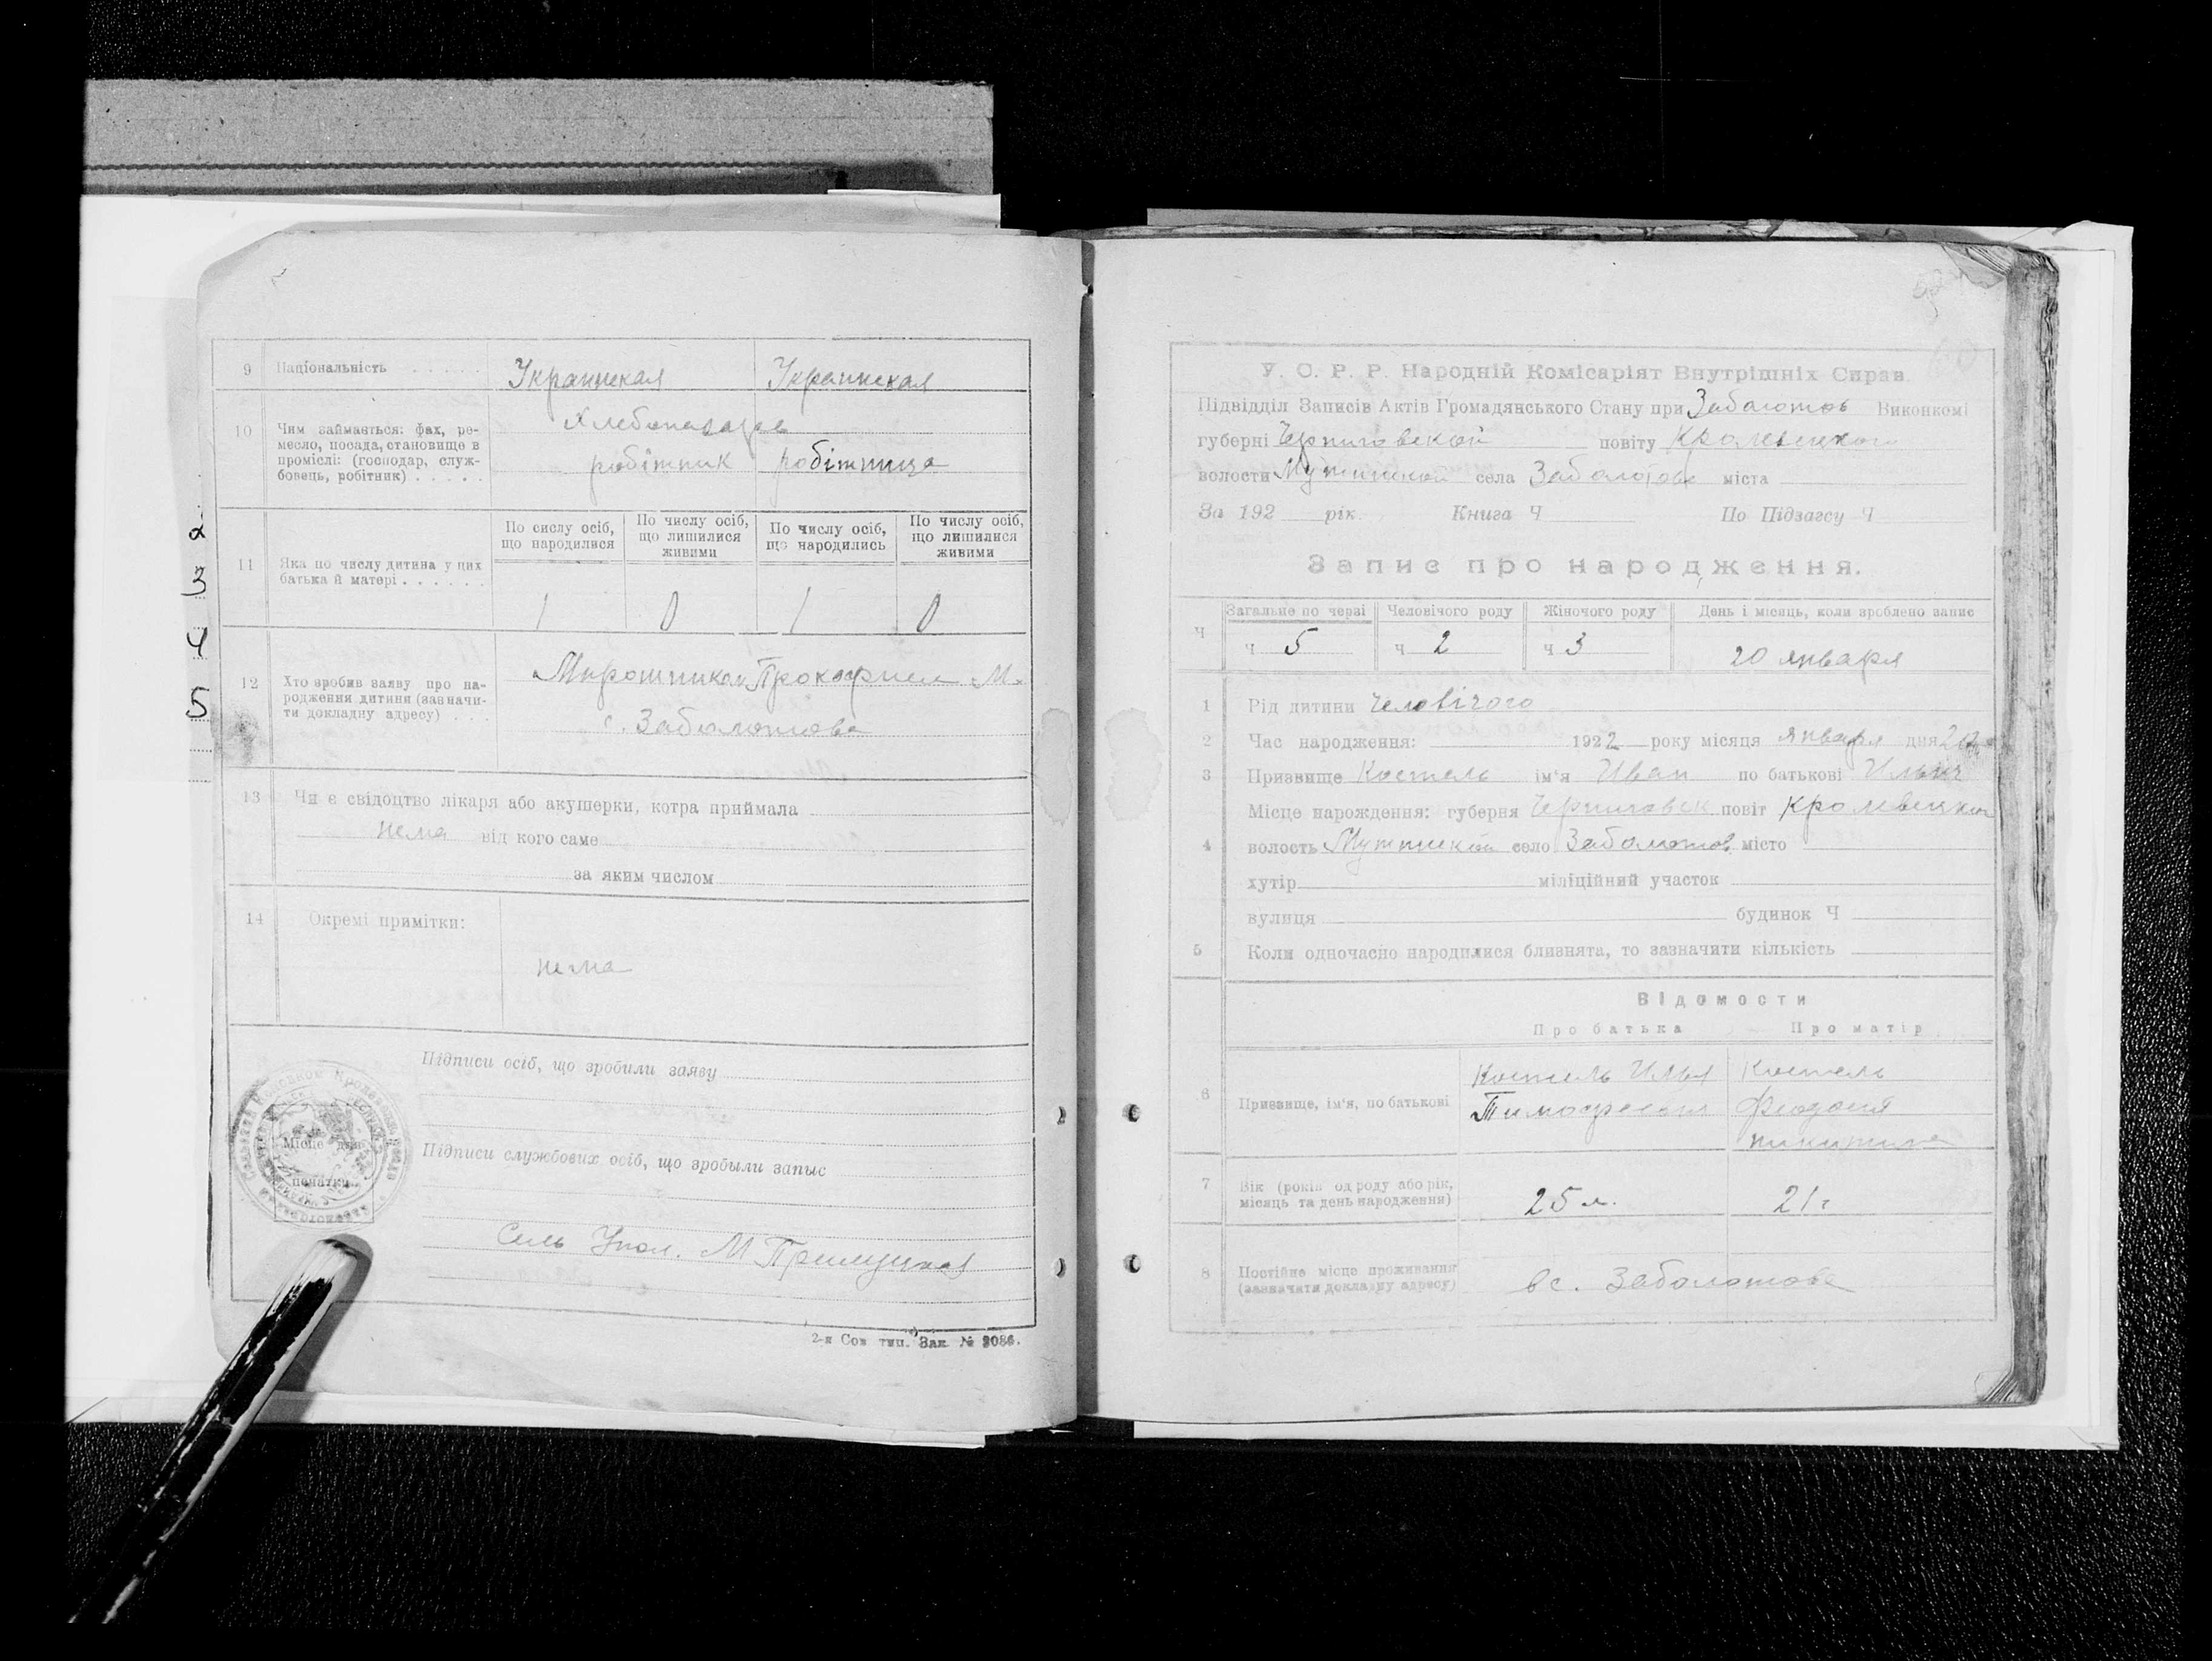 2
3
4
5
9 Національність . . . . . Украинская Украинская
10 Чим займається: фах, ре-
месло, посада, становище в
проміслі: (господар, служ-
бовець, робітник) . . . . .
робітник робітница
11 Яка по числу дитина у цих
батька й матері . . . . . .
По сислу осіб, що народилися
По числу осіб, що лишилися живими
По числу осіб, що народились
По числу осіб, що лишилися живими
1 0 1 0
12 Хто зробив заяву про на-
родження дитини (зазначи-
ти докладну адресу) . . .
с. Заболотова
13 Чи є свідоцтво лікаря або акушерки, котра приймала
нема від кого саме
за яким числом
14 Окремі примітки:
нема
Підписи осіб, що зробили заяву
Підписи службових осіб, що зробыли запыс
Місце для
печатки
Сель Упол. М
2-я Сов тип. Зак. № 2086.
У. С. Р. Р. Народній Комісаріят Внутрішніх Справ.
Підвідділ Записів Актів Громадянського Стану при Заболотов Виконкомі
губерні Черниговской повіту Кролевецкого
волости Мутинской села Заболотова міста
За 192 рік. Книга Ч По Підзагсу Ч
Запис про народження.
Ч Загальне по черзі Человічого роду Жіночого роду День і місяць, коли зроблено запис
ч 5 ч 2 ч 3 20 января
1 Рід дитини Человічого
2 Час народження: 1922 року місяця января дня
3 Призвище Костель ім'я Иван по батькові Ильич
Місце нарождения: губерня Черниговск повіт Кролевецкой
4 волость Мутинской село Заболотов місто
хутір міліційний участок
вулиця будинок Ч
5 Коли одночасно народилися близнята, то зазначити кількість
Відомости
Про батька Про матір
6 Призвище, ім'я, по батькові
Костель Илья Костель
Тимофеевич Феодосия
никитина
7 Вік (років од роду або рік,
місяць та день народження) 25 л. 21 г
8 Постійне місце проживання
(зазначити докладну адресу) в с. Заболотова